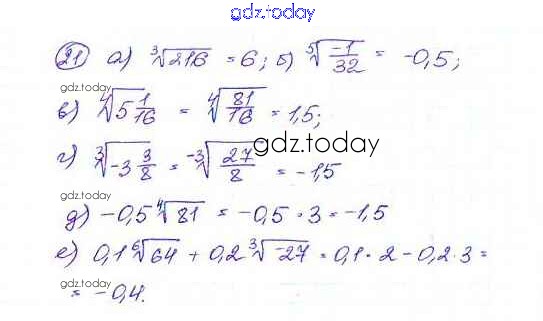 gdz.today
21 а) ∛216 = 6; б) ⁵√(-1/32) = -0,5;
gdz.today
в) ⁴√(5 1/16) = ⁴√(81/16) = 1,5;
gdz.today
г) ∛(-3 3/8) = -∛(27/8) = -1,5
gdz.today
д) -0,5 ⁴√81 = -0,5 · 3 = -1,5
е) 0,1 ⁶√64 + 0,2 ∛-27 = 0,1 · 2 - 0,2 · 3 =
gdz.today
= -0,4.